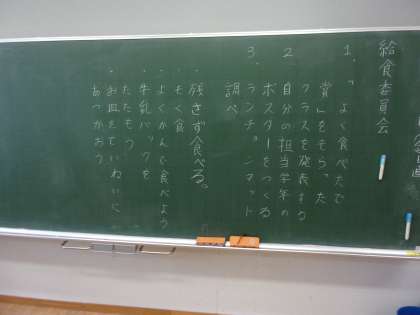 給食委員会
1. 「よく食べたで
賞」をもらった
クラスを発表する
2 自分の担当学年の
ポスターをつくる
3. ランチョンマット
調べ
・残さず食べる。
・もく食
・よくかんで食べよう
・牛乳パックを
たたもう
・お皿をていねいに
あつかおう